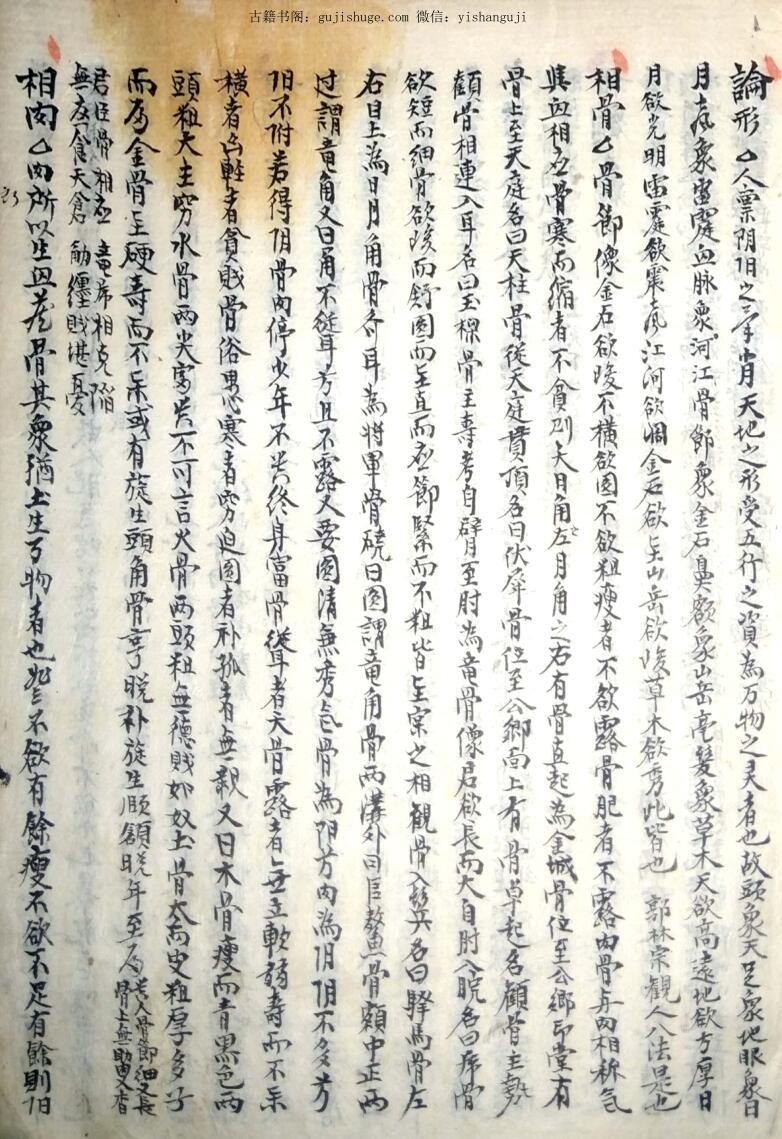 古籍书阁：gujishuge.com 微信：yishanguji
論形 人禀阴阳之气肖天地之形受五行之資為万物之灵者也故頭象天足象地眼象日
月声象雷霆血脉象河江骨節象金石鼻額象山岳毫髮象草木天欲高遠地欲方厚日
月欲光明雷霆欲震声江河欲潤金石欲坚山岳欲峻草木欲秀此皆也 郭林宗観人八法是也
相骨 骨節像金石欲峻不横欲圆不欲粗瘦者不欲露骨肥者不露肉骨与肉相称气
與血相应骨寒而缩者不貧則夭日角左月角之右有骨直起為金城骨位至公卿印堂有
骨上至天庭名曰天柱骨從天庭貫頂名曰伏犀骨位至公卿面上有骨卓起名顴骨主势
顴骨相連入耳名曰玉樑骨主壽考自臂至肘為竜骨像君欲長而大自肘入腕名曰虎骨
欲短而细骨欲峻而舒圆而坚直而应節緊而不粗皆坚实之相観骨入鬓名曰驛馬骨左
右目上為日月角骨各耳為將軍骨 曰圆謂竜角骨两溝外曰巨鰲骨額中正两
过謂竜角又曰角不從耳芳且不露又要圆清無秀气骨為阳方肉為阴阴不多芳
阳不附若得阴骨肉停少年不贵終身富骨聳者夭骨露者無立軟弱壽而不乐
横者凶軽者貧贱骨俗愚寒者窮迫圆者补孤者無親又曰木骨瘦而青黑色两
頭粗大主窮水骨两尖富贵不可言火骨两頭粗無德贱如奴土骨大而皮粗厚多子
而局金骨坚硬壽而不乐或有旋生頭角骨亨晚补旋生頤額晚年至局 贵人骨節細又長
骨上無助又香
君臣骨相应 竜虎相克陷
無应食天倉 觔纏贱堪憂
相肉 肉所以生血荗骨其象猶土生万物者也 不欲有餘瘦不欲不足有餘則阳